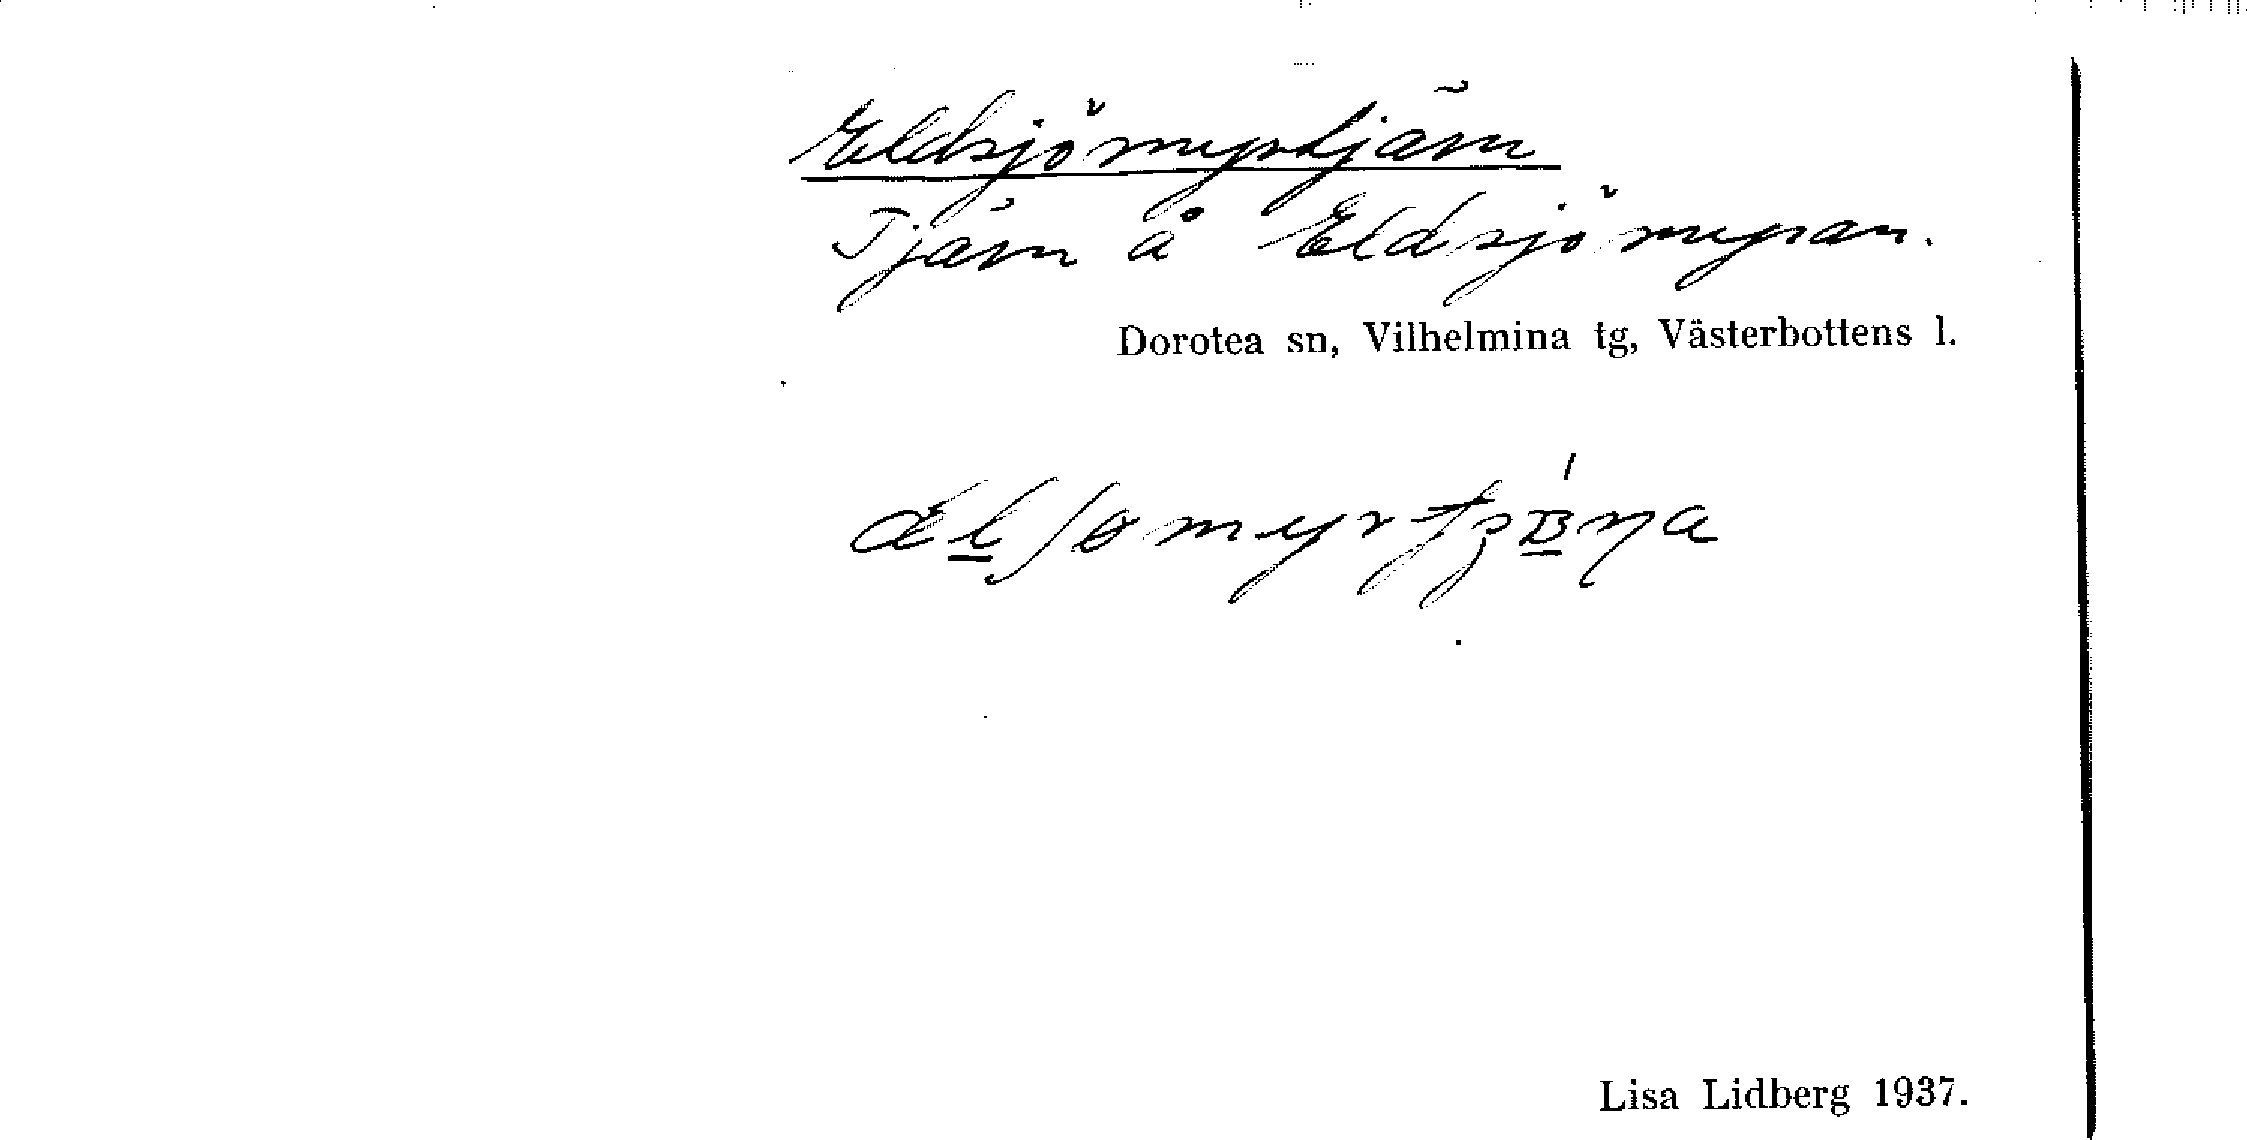 Eldsjömyrtjärn
Tjärn å Eldsjömyran.
Dorotea sn, Vilhelmina tg, Västerbottens l.
Lisa Lidberg 1937.